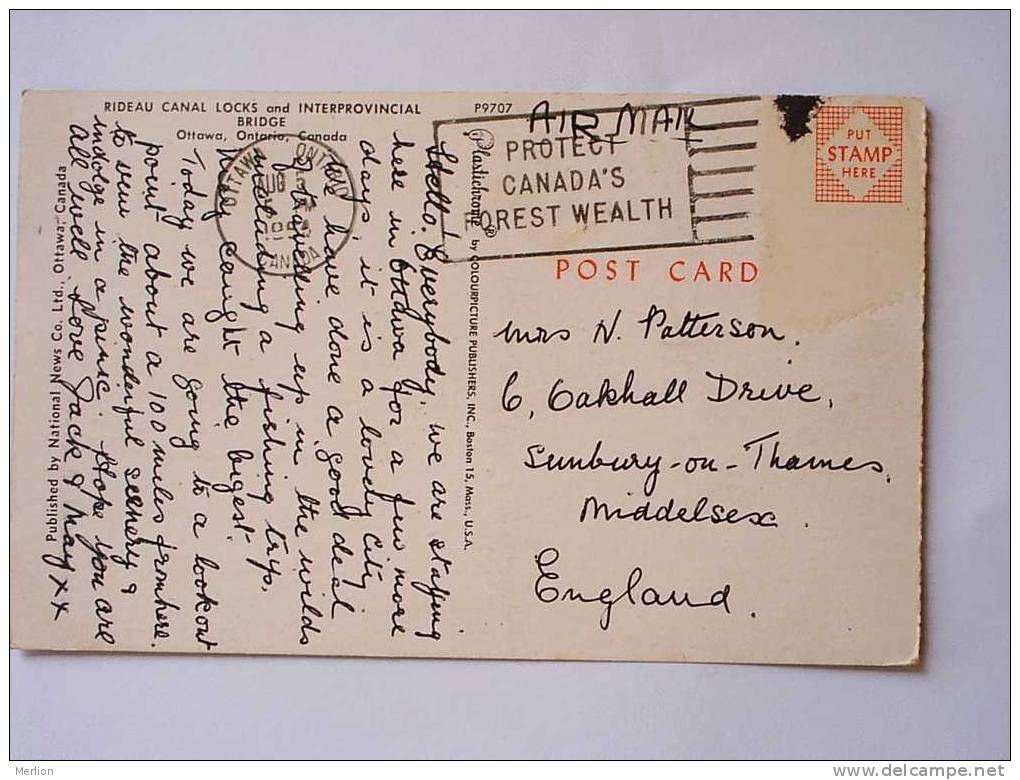 RIDEAU CANAL LOCKS and INTERPROVINCIAL
BRIDGE
Ottawa, Ontario, Canada
P9707
AIR MAIL
PROTECT
CANADA'S
FOREST WEALTH
PUT
STAMP
HERE
POST CARD
Hello. Everybody, we are staying
here in Ottawa for a few more
days it is a lovely City
We have done a good deal
of traveling up in the wilds
including a fishing trip,
May caught the bigest.
Today we are going to a lookout
point about a 100 miles from here.
to view the wonderful scenery &
indolge in a picnic. Hope you are
all well Love Jack & May xx
Published by National News Co. Ltd., Ottawa, Canada
Plastichrome® by COLOURPICTURE PUBLISHERS, INC., Boston 15, Mass., U.S.A.
OTTAWA ONTARIO
CANADA
Mrs N. Patterson.
6, Oakhall Drive,
Sunbury-on-Thames.
Middelsex.
England.
Merlion
delcampe.net